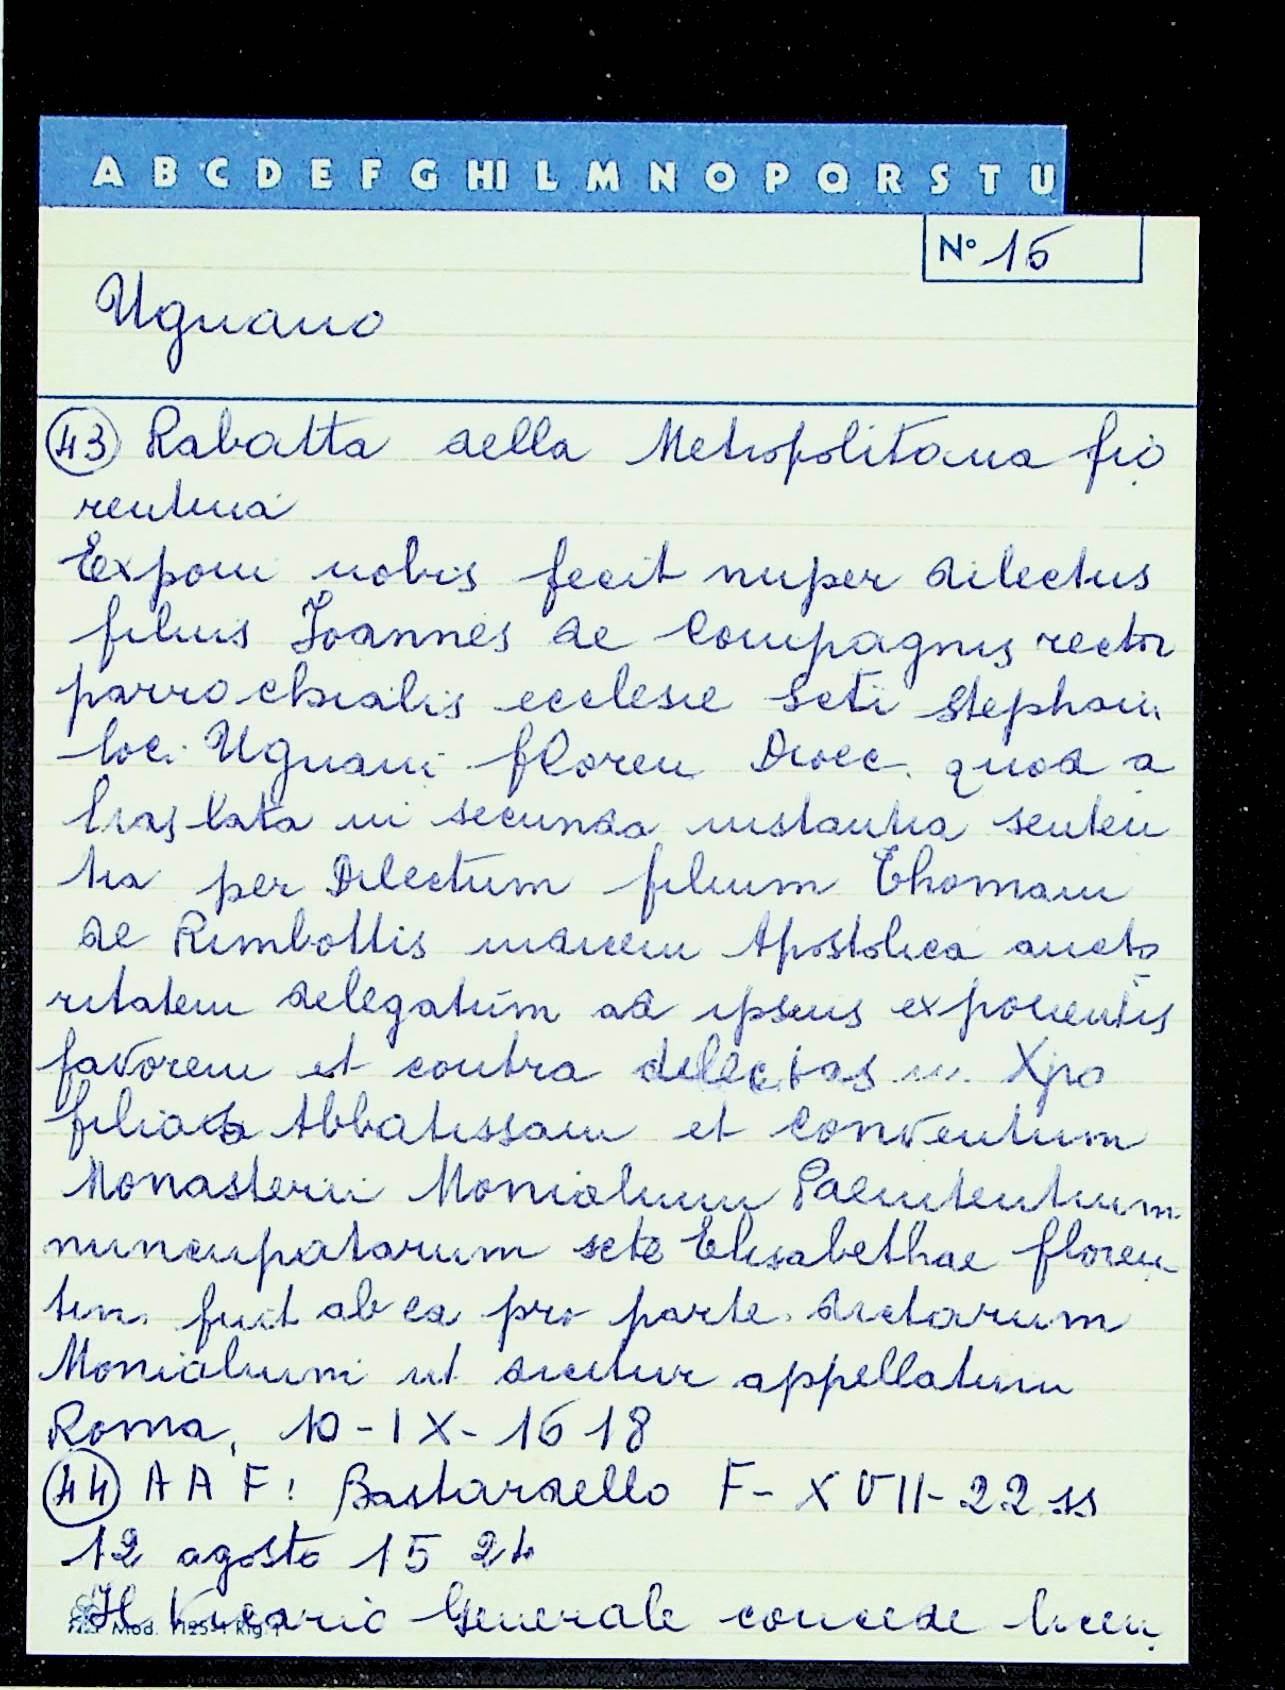 A B C D E F G HI L M N O P Q R S T U
N° 16
Ugnano
43 Rabatta della Metropolitana fio
rentina
Exponi nobis fecit nuper dilectus
filius Joannes de Compagnis rector
parrochialis ecclesie Scti Stephani
loci Ugnani floren Dioec. quod a
lias lata in secunda instantia senten
tia per Dilectum filium Thomam
de Rimbottis iudicem Apostolica aucto
ritatem delegatum ad ipsius exponentis
favorem et contra dilectas in Xpo
filias Abbatissam et conventum
Monasterii Monialium Paenitentium
nuncupatarum scte Elisabethae floren
tin. fuit ab ea pro parte dictarum
Monialium ut dicitur appellatum
Roma, 10-IX-1618
44 A A F: Bastardello F-XVII-22 ss
12 agosto 1524
Il Vicario Generale concede licen
Mod.